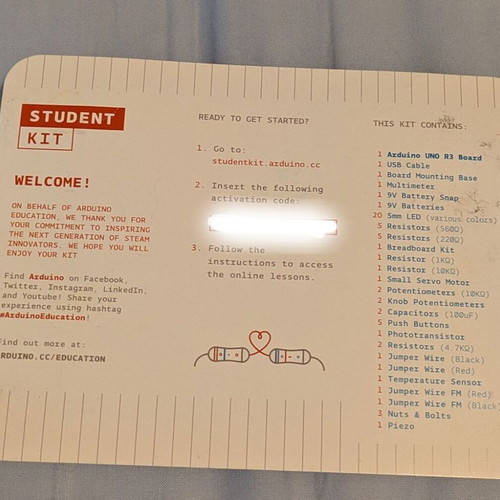 STUDENT
KIT
WELCOME!
ON BEHALF OF ARDUINO
EDUCATION, WE THANK YOU FOR
YOUR COMMITMENT TO INSPIRING
THE NEXT GENERATION OF STEAM
INNOVATORS. WE HOPE YOU WILL
ENJOY YOUR KIT
Find Arduino on Facebook,
Twitter, Instagram, LinkedIn,
and Youtube! Share your
experience using hashtag
#ArduinoEducation!
Find out more at:
ARDUINO.CC/EDUCATION
READY TO GET STARTED?
1. Go to:
studentkit.arduino.cc
2. Insert the following
activation code:
3. Follow the
instructions to access
the online lessons.
THIS KIT CONTAINS:
1 Arduino UNO R3 Board
1 USB Cable
1 Board Mounting Base
1 Multimeter
1 9V Battery Snap
1 9V Batteries
20 5mm LED (various colors)
5 Resistors (560Ω)
5 Resistors (220Ω)
1 Breadboard Kit
1 Resistor (1KΩ)
1 Resistor (10KΩ)
1 Small Servo Motor
2 Potentiometers (10KΩ)
2 Knob Potentiometers
2 Capacitors (100uF)
5 Push Buttons
1 Phototransistor
2 Resistors (4.7KΩ)
1 Jumper Wire (Black)
1 Jumper Wire (Red)
1 Temperature Sensor
1 Jumper Wire FM (Red)
1 Jumper Wire FM (Black
3 Nuts & Bolts
1 Piezo